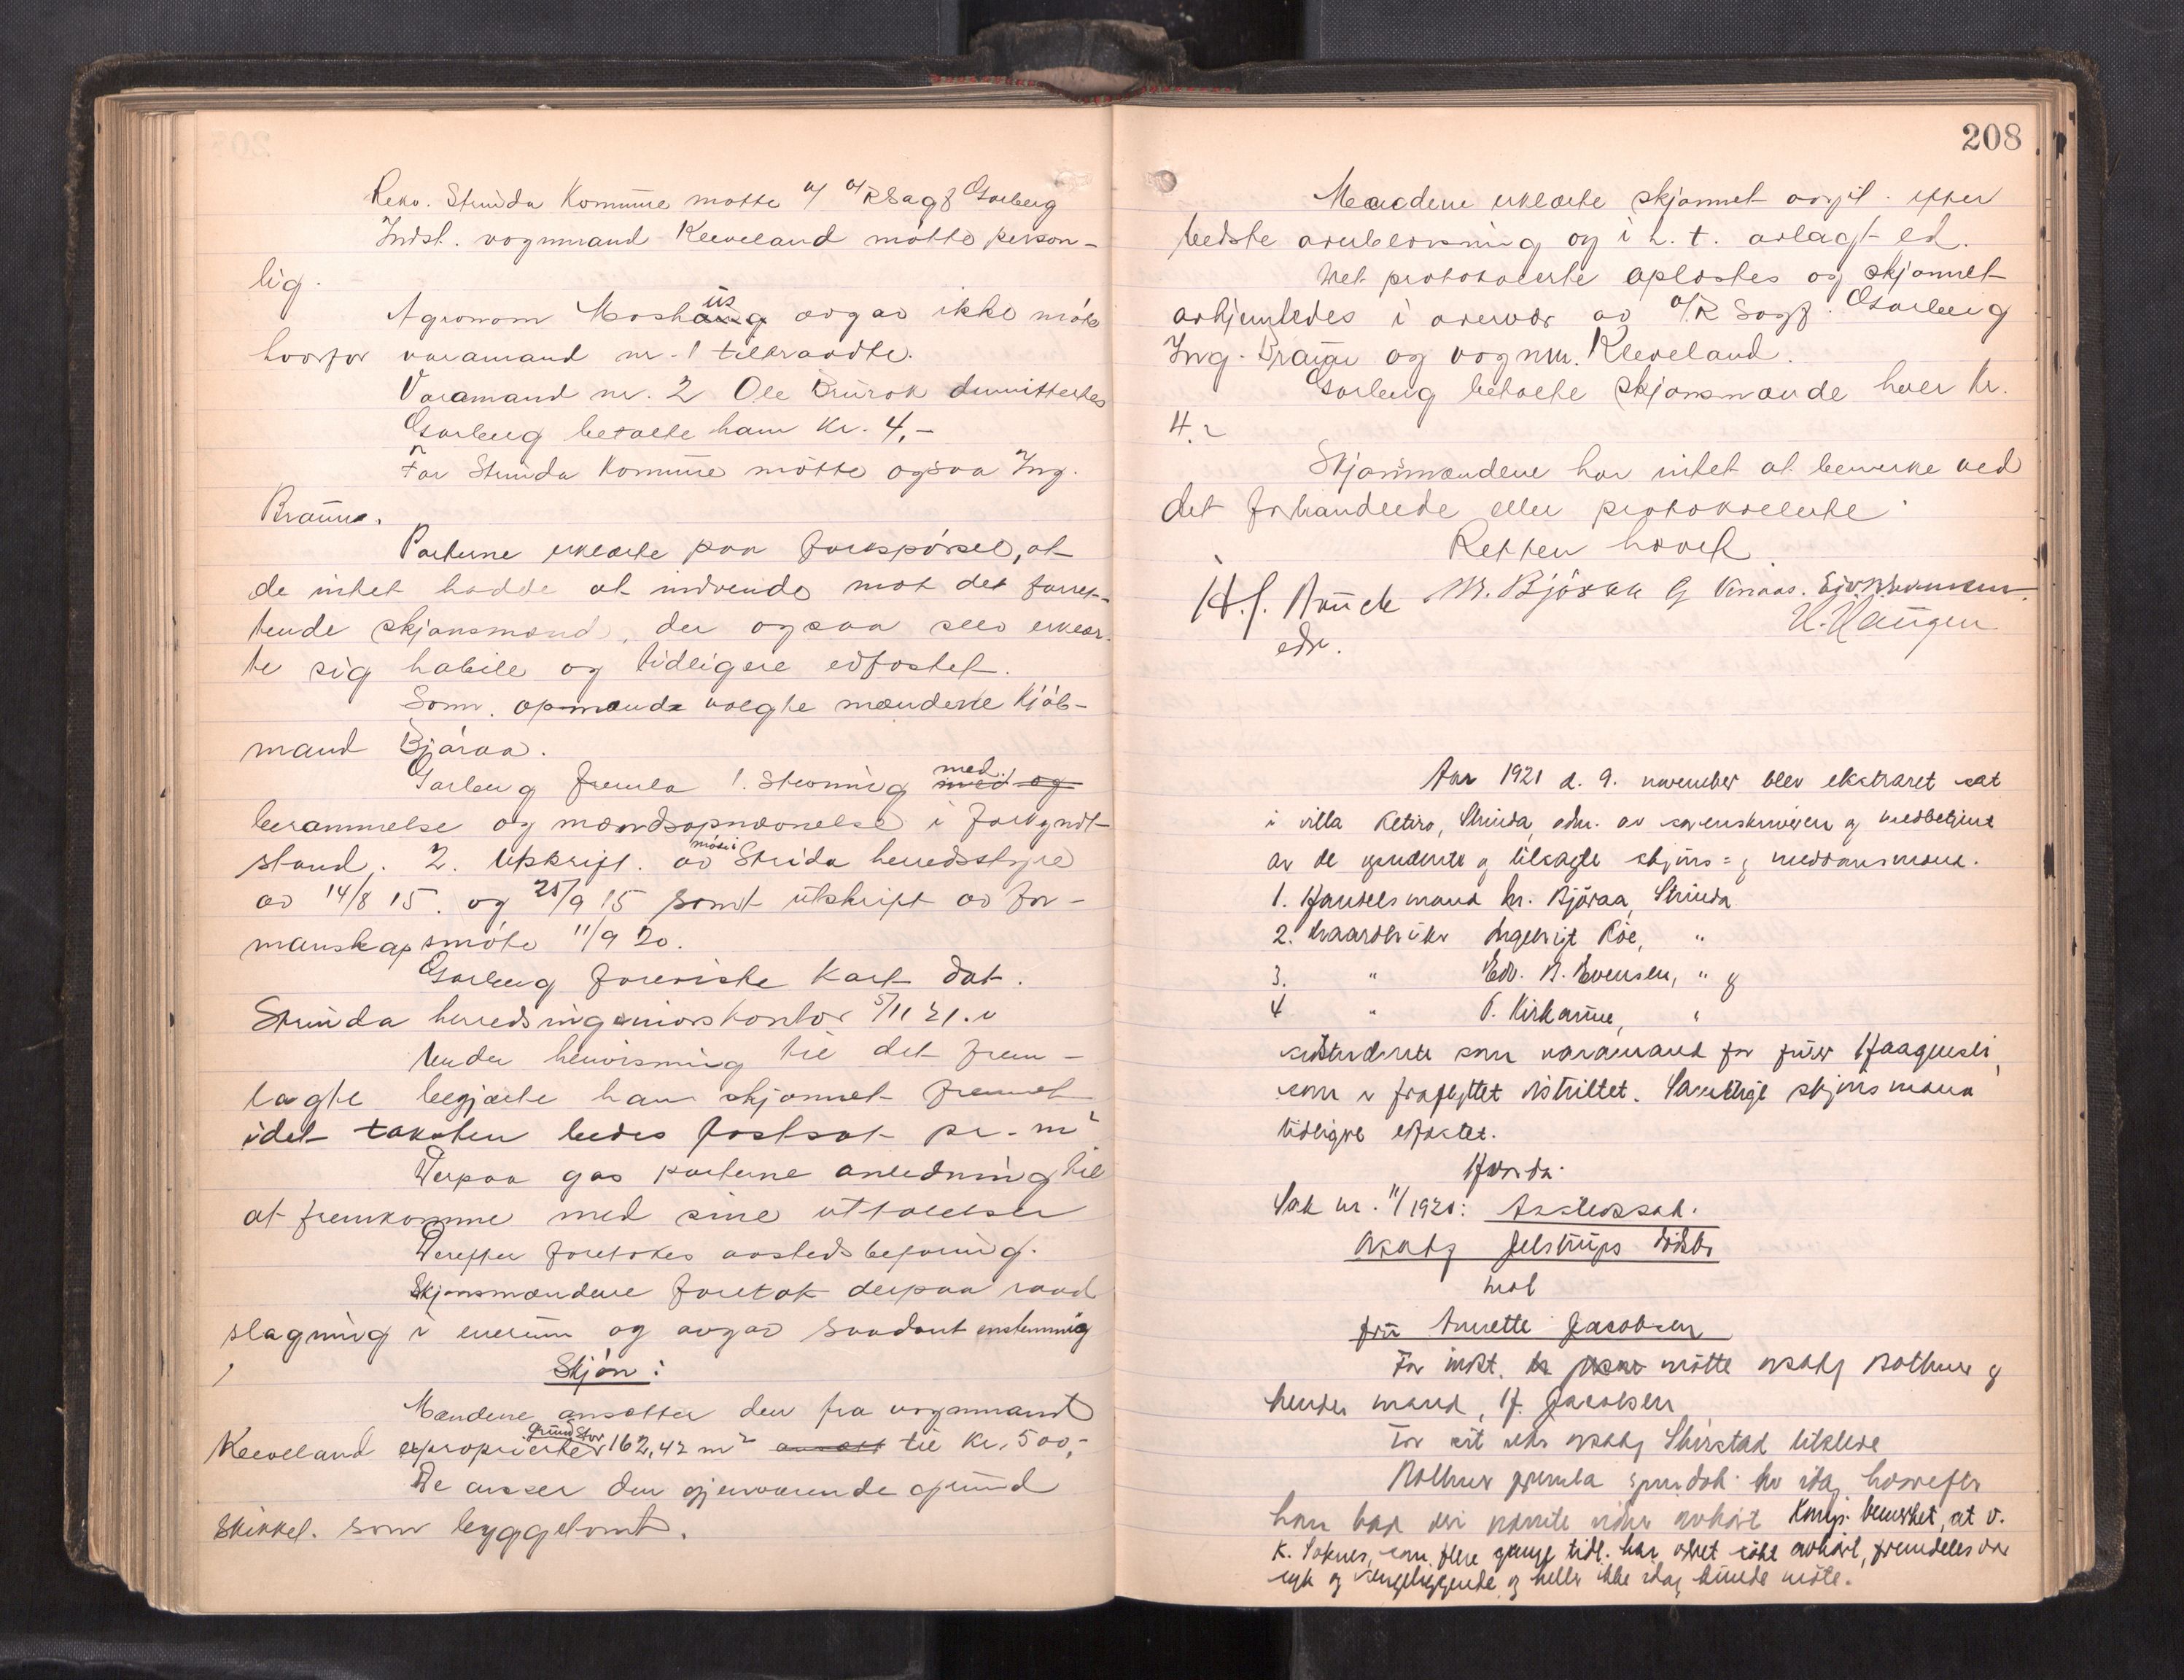 Rekv. Strinda Kommune møtte v/ o/RSagf Garberg
Indst. vognmand Kleveland møtte person-
lig.
Agronom Moshuus avgav ikke møte
hvorfor varamand nr. 1 tiltraadte.
Varamand nr. 2 Ole dimitteres
Garberg betalte ham Kr. 4,-
For Strinda Kommune møtte ogsaa Ing.
Braune.
Parterne erklærte paa forespørsel, at
de intet hadde at indvende mot det forret-
tende skjønsmænd, der ogsaa selv erklær-
te sig habile og tidligere edfæstet.
Som opmand valgte mændene Kjøb-
mand Bjøraa.
Garberg fremla 1. Stevning med
berammelse og mændsopnævnelse i forkyndt
stand. 2. Utskrift av møte i Strida herredsstyre
av 14/8 15. og 25/9 15 samt utskrift av for-
manskapsmøte 11/9 20.
Garberg foreviste Kart dat.
Strinda herredsingeniørskontor 5/11 21.
Under henvisning til det frem-
lagte begjærte han skjønnet fremmet
idet taksten bedes fastsat pr. m²
Derpaa gav parterne anledning til
at fremkomme med sine uttalelser
Derefter foretokes aastedsbefaring.
Skjønsmændene foretok derpaa raad-
slagning i enerum og avgav saadant enstemmig
Skjøn:
Mændene ansætter den fra vognmand
Kleveland exproprierter grund stor 162,42 m² til Kr. 500,-
De anser den gjenværende grund
skikket som byggetomt.
208
Mændene erklærte skjønnet avgit efter
bedste overbevisning og i h. t. avlagt ed.
Det protokolerte oplæstes og skjønnet
avhjemledes i overvær av o/R Sagf. Garberg
Ing. Braune og vognm. Kleveland.
Garberg betalte skjønsmænde hver Kr.
4.-
Skjønsmændene har intet at bemerke ved
det forhandlede eller protokollerte
Retten hævet
H.J. Bauck M. Björaa G Edv. N. Evensen.
edv. H. Haugen
Aar 1921 d. 9. november blev ekstraret sat
i villa Retiro, Strinda, adm. av sorenskriveren og medbetjent
av de opnævnte og tilsagte skjøns- og meddomsmænd.
1. Handelsmand M. Björaa, Strinda
2. Gaardbruker Ingebrigt Röe, "
3. " Edv. N. Evensen, " og
4 " P. Kirkaune, "
sidstnævnte som varamand for
som er fraflyttet distriktet. Samtlige skjønsmænd
tidligere edfæstet.
Hvorda:
Sak nr. 11/1920: Aastedssak.
Jelstrups dødsbo
mot
fru Annette Jacobsen
For indst. møtte Bothner og
hendes mand, H. Jacobsen
For sit vedk. Skirstad tilstede
Bothner fremla av idag, hvorefter
han bad avhørt bemerket, at v.
K. Saknes, som flere gange tidl. har været søkt avhørt, fremdeles var
syk og sengeliggende og heller ikke idag kunde møte.